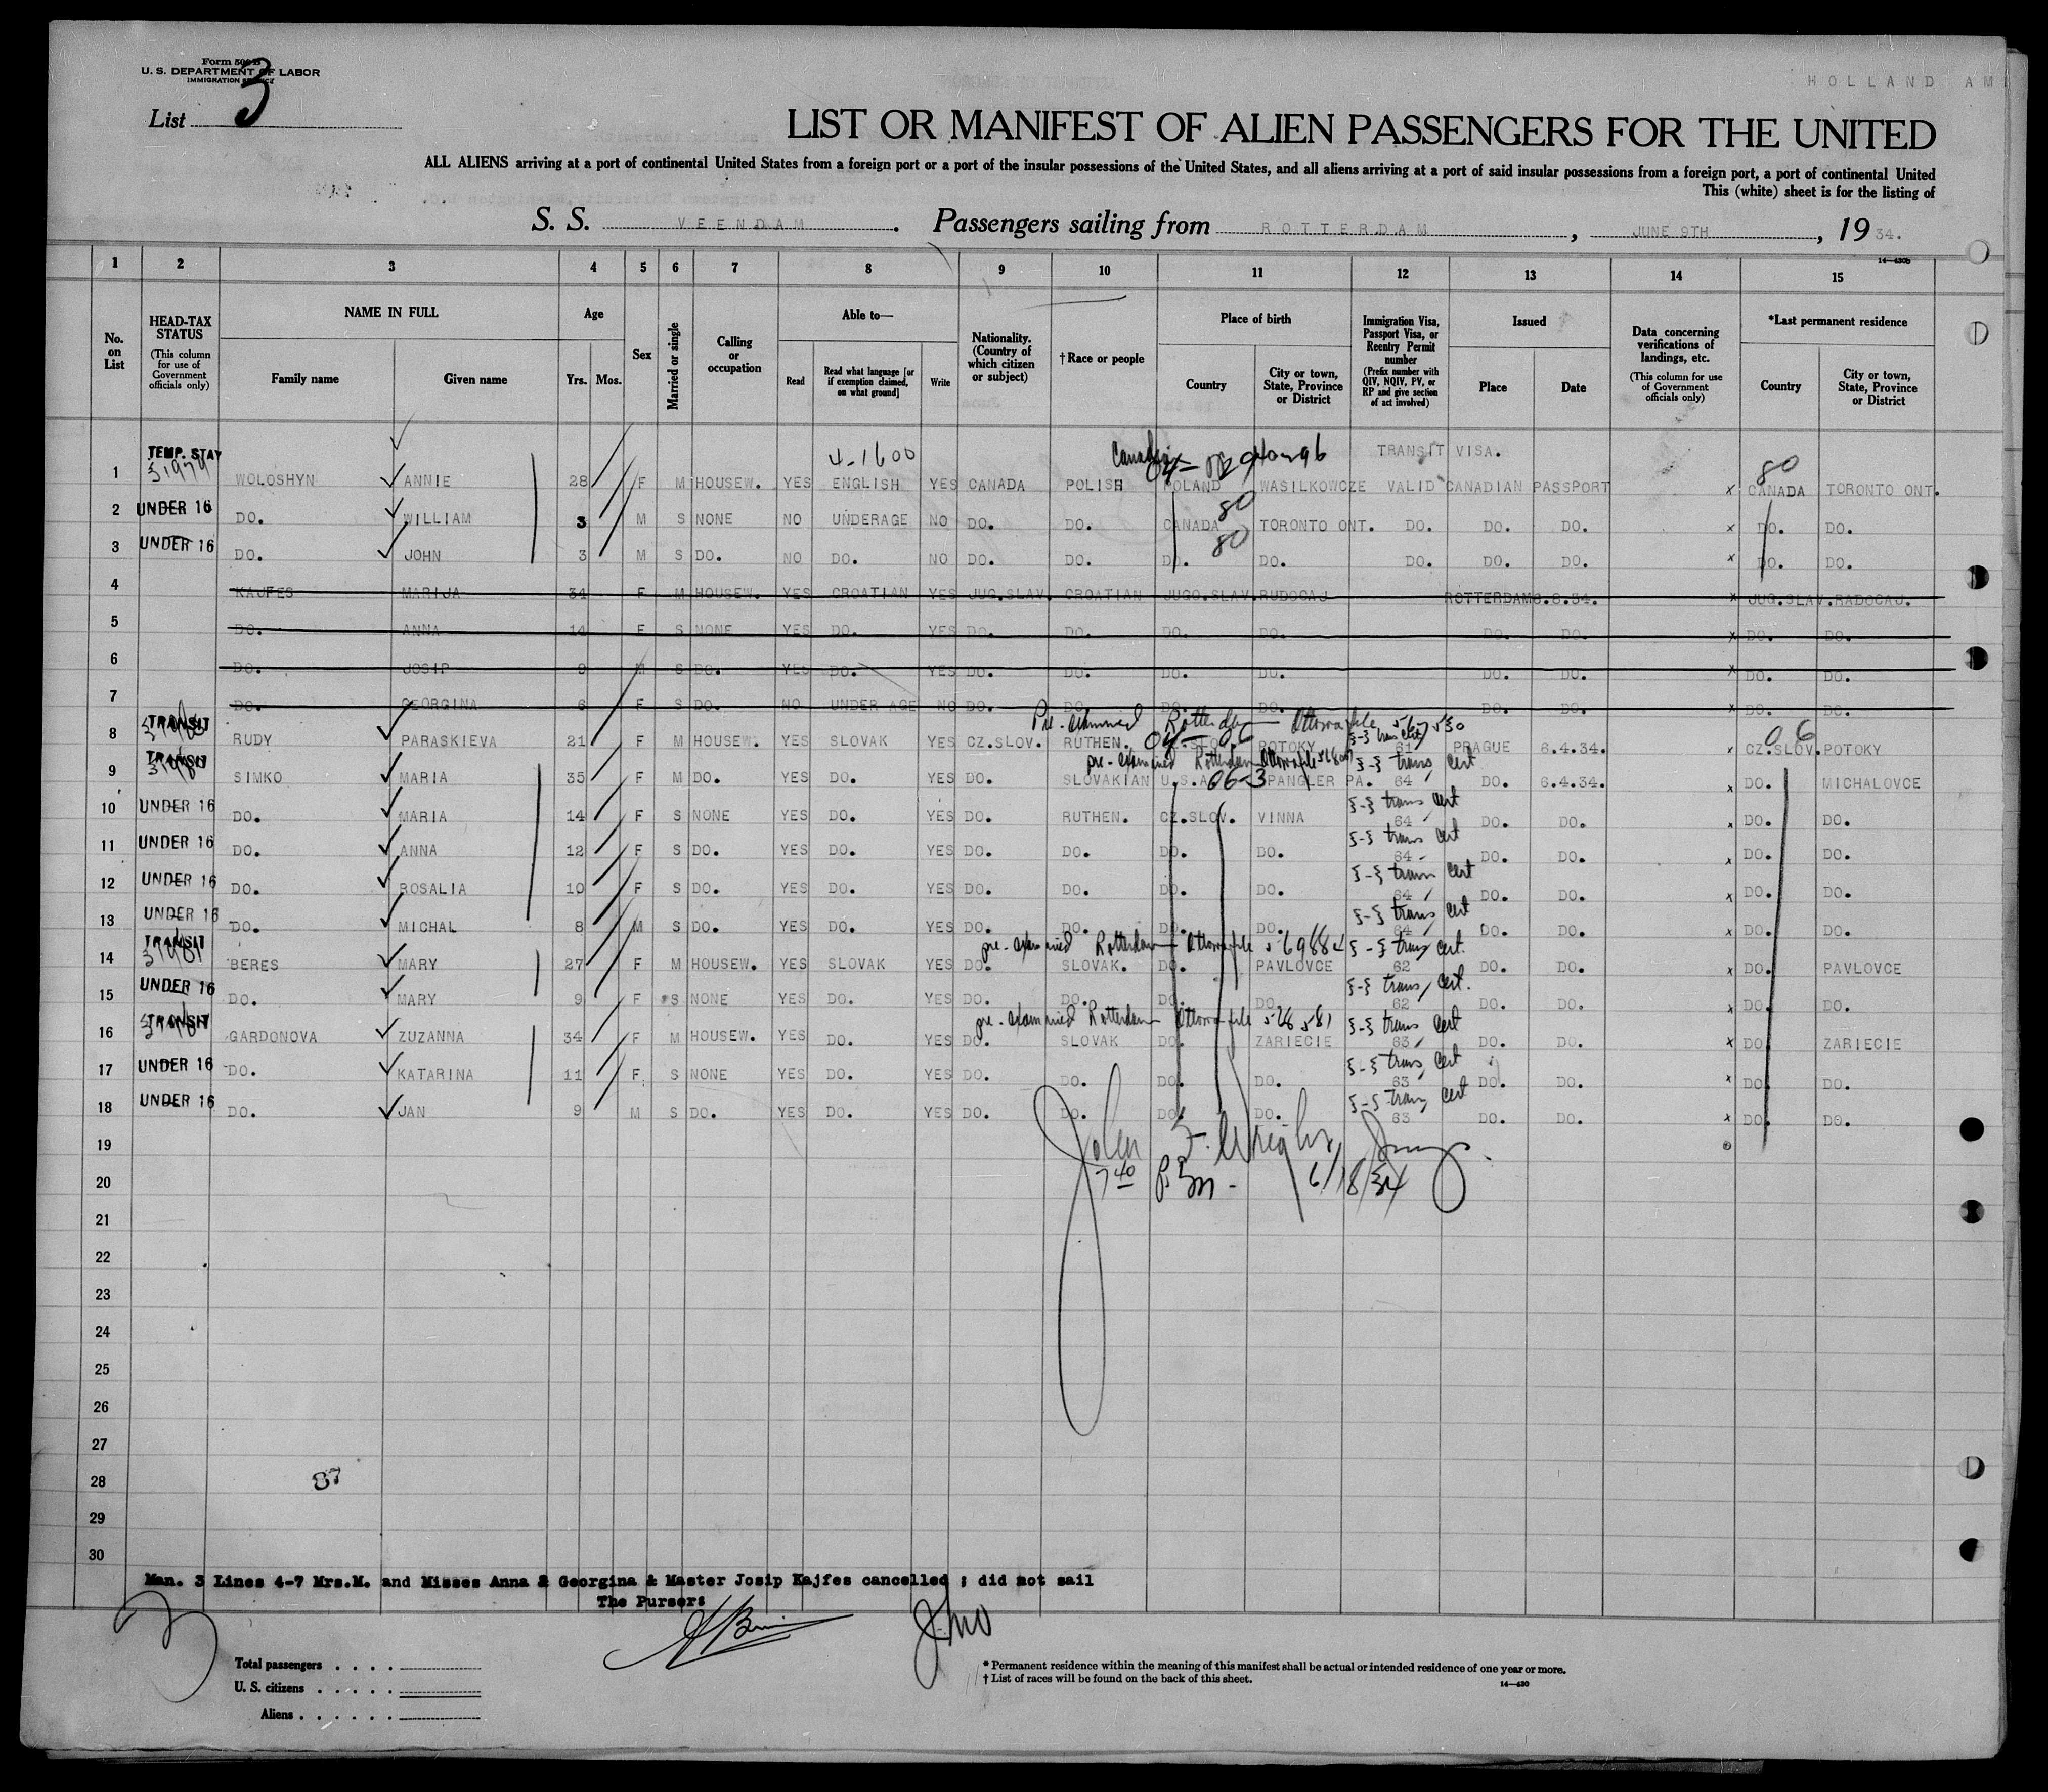 Form 500 B
U. S. DEPARTMENT OF LABOR
IMMIGRATION SERVICE
HOLLAND AM
List 3
LIST OR MANIFEST OF ALIEN PASSENGERS FOR THE UNITED
ALL ALIENS arriving at a port of continental United States from a foreign port or a port of the insular possessions of the United States, and all aliens arriving at a port of said insular possessions from a foreign port, a port of continental United
This (white) sheet is for the listing of
S. S. VEENDAM. Passengers sailing from ROTTERDAM, JUNE 9TH, 1934.
14—430b
1 2 3 4 5 6 7 8 9 10 11 12 13 14 15
No. on List
HEAD-TAX STATUS (This column for use of Government officials only)
NAME IN FULL Family name Given name
Age Yrs. Mos.
Sex
Married or single
Calling or occupation
Able to— Read Read what language [or if exemption claimed, on what ground] Write
Nationality. (Country of which citizen or subject)
† Race or people
Place of birth Country City or town, State, Province or District
Immigration Visa, Passport Visa, or Reentry Permit number (Prefix number with QIV, NQIV, PV, or RP and give section of act involved)
Issued Place Date
Data concerning verifications of landings, etc. (This column for use of Government officials only)
*Last permanent residence Country City or town, State, Province or District
4-1600 Canadian TRANSIT VISA.
1 TEMP. STAY WOLOSHYN ANNIE 28 F M HOUSEW. YES ENGLISH YES CANADA POLISH POLAND WASILKOWCZE VALID CANADIAN PASSPORT x 80 CANADA TORONTO ONT.
2 UNDER 16 DO. WILLIAM 3 M S NONE NO UNDERAGE NO DO. DO. 80 CANADA TORONTO ONT. DO. DO. DO. x DO. DO.
3 UNDER 16 DO. JOHN 3 M S DO. NO DO. NO DO. DO. 80 DO. DO. DO. DO. DO. x DO. DO.
4 KAJFES MARIJA 34 F M HOUSEW. YES CROATIAN YES JUG.SLAV. CROATIAN JUGO.SLAV. RUDOCAJ ROTTERDAM 8.6.34. x JUG.SLAV. RADOCAJ.
5 DO. ANNA 14 F S NONE YES DO. YES DO. DO. DO. DO. DO. DO. x DO. DO.
6 DO. JOSIP 9 M S DO. YES DO. YES DO. DO. DO. DO. DO. DO. x DO. DO.
7 DO. GEORGINA 6 F S DO. NO UNDER AGE NO DO. DO. DO. DO. DO. DO. x DO. DO.
Pre-examined Rotterdam Ottawa file 567530
8 TRANSIT RUDY PARASKIEVA 21 F M HOUSEW. YES SLOVAK YES CZ.SLOV. RUTHEN. CZ.SLOV. POTOKY trans cert 61 PRAGUE 6.4.34. x 06 CZ.SLOV. POTOKY
pre-examined Rotterdam Ottawa file
9 TRANSIT SIMKO MARIA 35 F M DO. YES DO. YES DO. SLOVAKIAN U.S.A. 06-3 SPANGLER PA. trans cert 64 DO. 6.4.34. x DO. MICHALOVCE
10 UNDER 16 DO. MARIA 14 F S NONE YES DO. YES DO. RUTHEN. CZ.SLOV. VINNA trans cert 64 DO. DO. x DO. DO.
11 UNDER 16 DO. ANNA 12 F S DO. YES DO. YES DO. DO. DO. DO. trans cert 64 DO. DO. x DO. DO.
12 UNDER 16 DO. ROSALIA 10 F S DO. YES DO. YES DO. DO. DO. DO. trans cert 64 DO. DO. x DO. DO.
13 UNDER 16 DO. MICHAL 8 M S DO. YES DO. YES DO. DO. DO. DO. trans cert 64 DO. DO. x DO. DO.
pre-examined Rotterdam Ottawa file 569884
14 TRANSIT BERES MARY 27 F M HOUSEW. YES SLOVAK YES DO. SLOVAK. DO. PAVLOVCE trans cert. 62 DO. DO. x DO. PAVLOVCE
15 UNDER 16 DO. MARY 9 F S NONE YES DO. YES DO. DO. DO. DO. trans cert. 62 DO. DO. x DO. DO.
pre-examined Rotterdam Ottawa file 528581
16 TRANSIT GARDONOVA ZUZANNA 34 F M HOUSEW. YES DO. YES DO. SLOVAK DO. ZARIECIE trans cert 63 DO. DO. x DO. ZARIECIE
17 UNDER 16 DO. KATARINA 11 F S NONE YES DO. YES DO. DO. DO. DO. trans cert 63 DO. DO. x DO. DO.
18 UNDER 16 DO. JAN 9 M S DO. YES DO. YES DO. DO. DO. DO. trans cert 63 DO. DO. x DO. DO.
19 John
20 7 40 P.M. - 6/18/34
21
22
23
24
25
26
27
28 87
29
30
Man. 3 Lines 4-7 Mrs.M. and Misses Anna & Georgina & Master Josip Kajfes cancelled ; did not sail
The Pursers
Total passengers
U. S. citizens
Aliens
* Permanent residence within the meaning of this manifest shall be actual or intended residence of one year or more.
† List of races will be found on the back of this sheet.
14—430